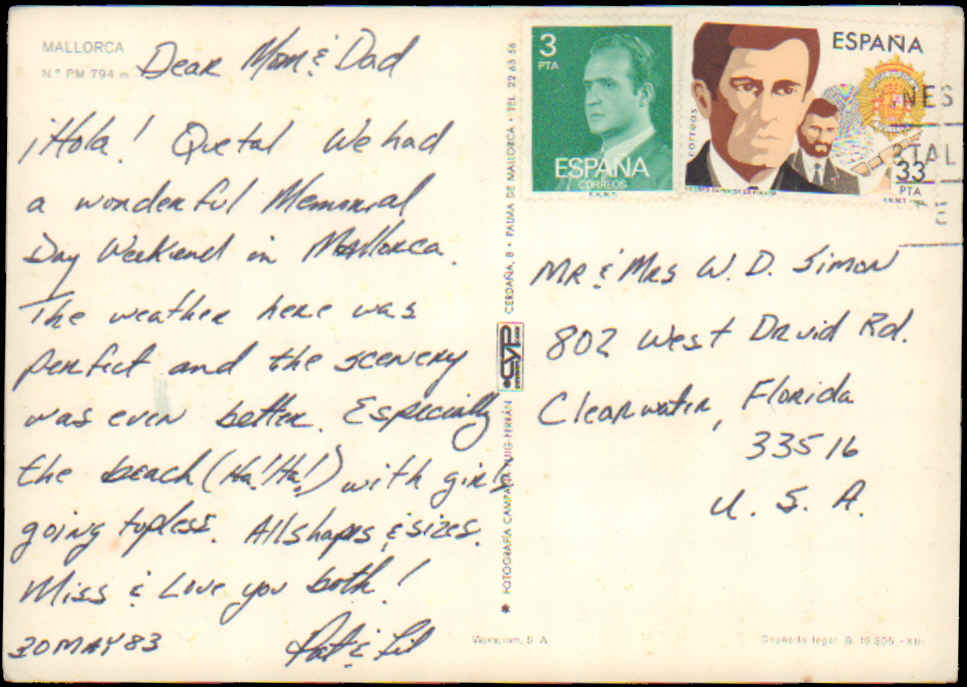 MALLORCA
N.º PM 794
Dear Mom & Dad
¡Hola! Que tal We had
a wonderful Memorial
Day Weekend in Mallorca.
The weather here was
perfect and the scenery
was even better. Especially
the beach (Ha! Ha!) with girls
going topless. All shapes & sizes.
Miss & Love you both!
30 MAY 83 Pat & Lil
FOTOGRAFIA CAMPAÑA PUIG-FERRÁN
CERDAÑA, 8 • PALMA DE MALLORCA • TEL. 22 63 56
3
PTA
ESPAÑA
CORREOS
ESPAÑA
correos
33
PTA
MR & MRS W. D. Simon
802 West Druid Rd.
Clearwater, Florida
33516
U. S. A.
S. A.
Depósito legal B.